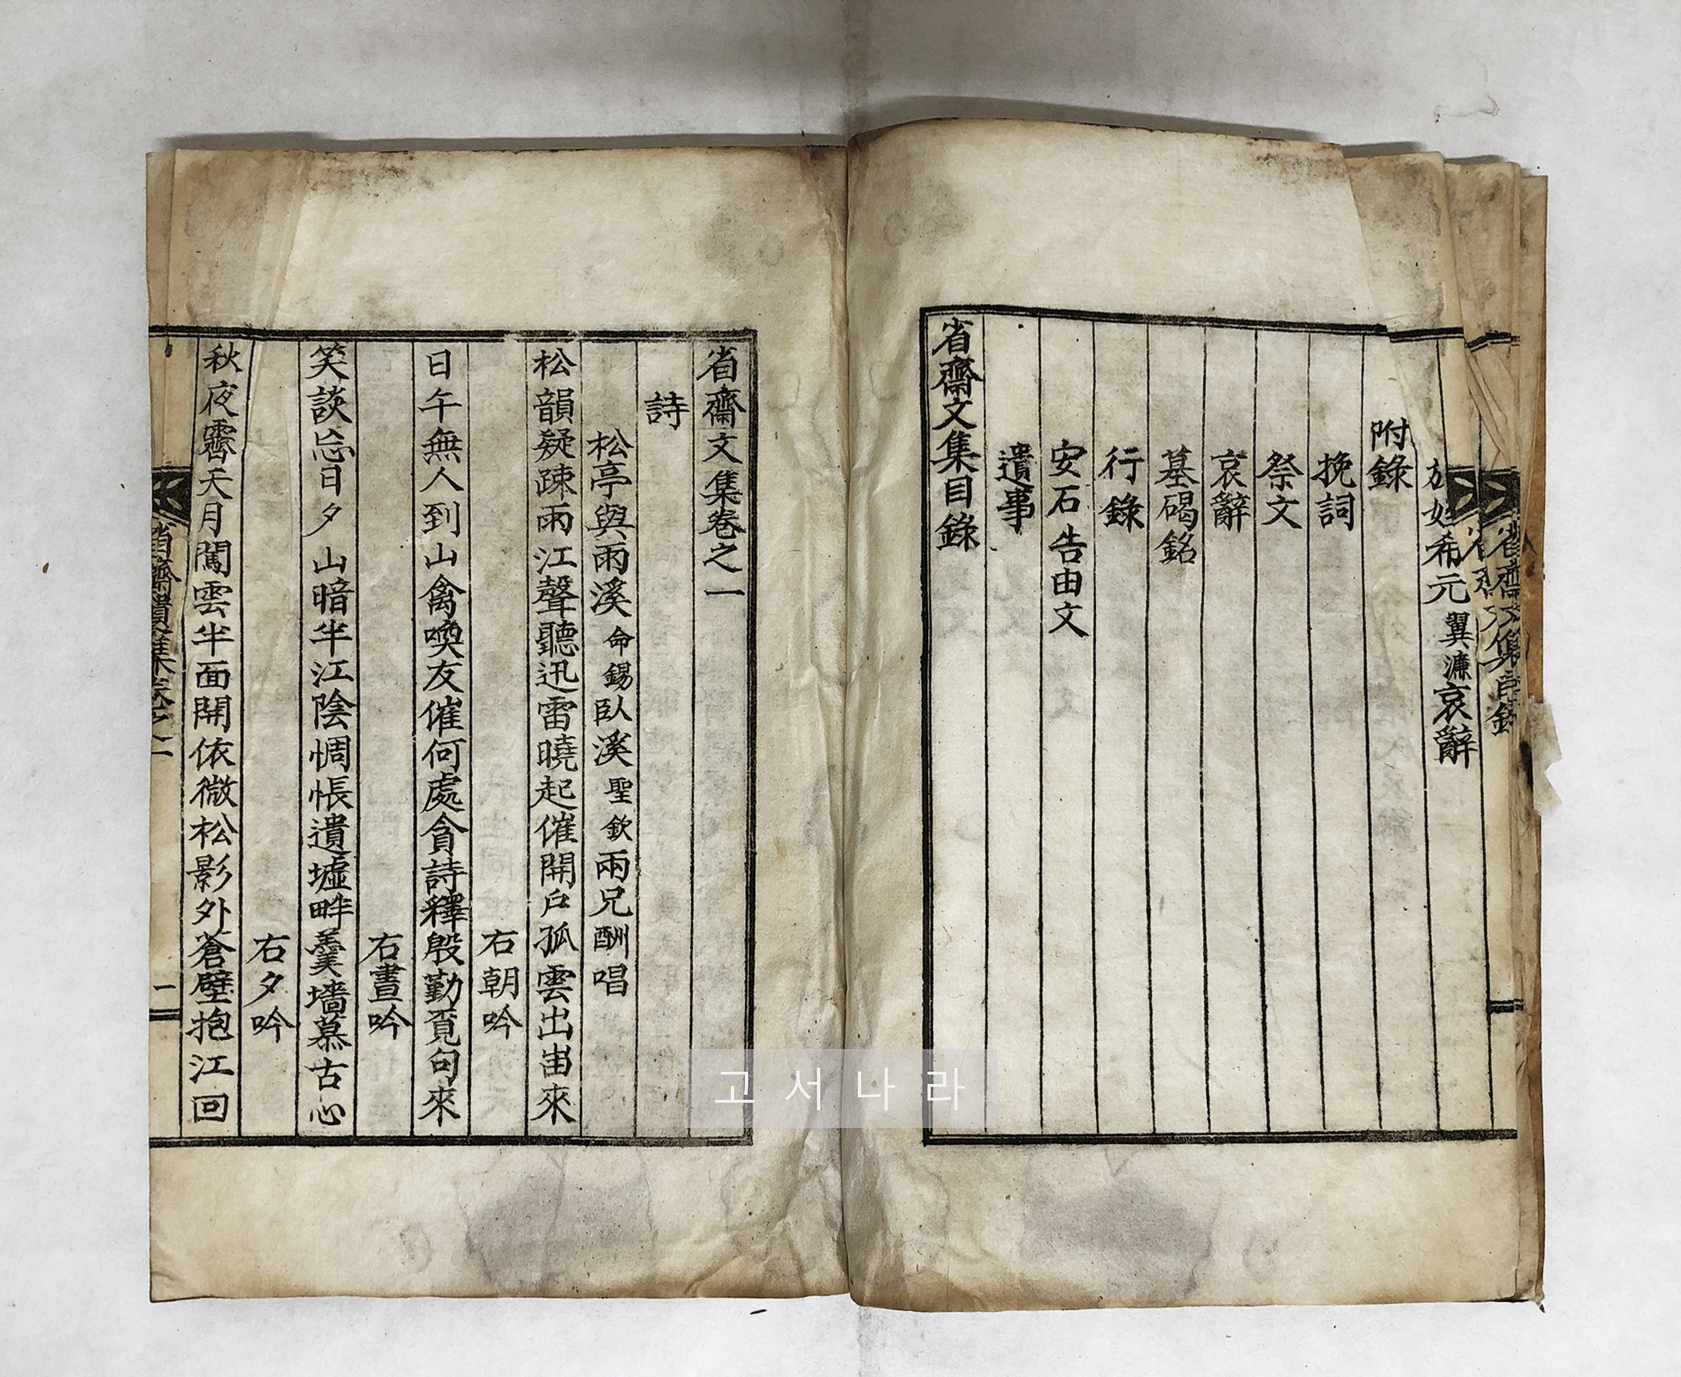 省齋文集目錄
族姪希元翼濂哀辭
附錄
挽詞
祭文
哀辭
墓碣銘
行錄
安石告由文
遺事
省齋文集目錄
省齋文集卷之一
詩
松亭與雨溪命錫臥溪聖欽兩兄酬唱
松韻疑疎雨江聲聽迅雷曉起催開戶孤雲出峀來
右朝吟
日午無人到山禽喚友催何處貪詩釋殷勤覓句來
右晝吟
笑談忘日夕山暗半江陰惆悵遺墟畔羹墻慕古心
右夕吟
秋夜霽天月闖雲半面開依微松影外蒼壁抱江回
省齋遺集卷之一
一
고서나라